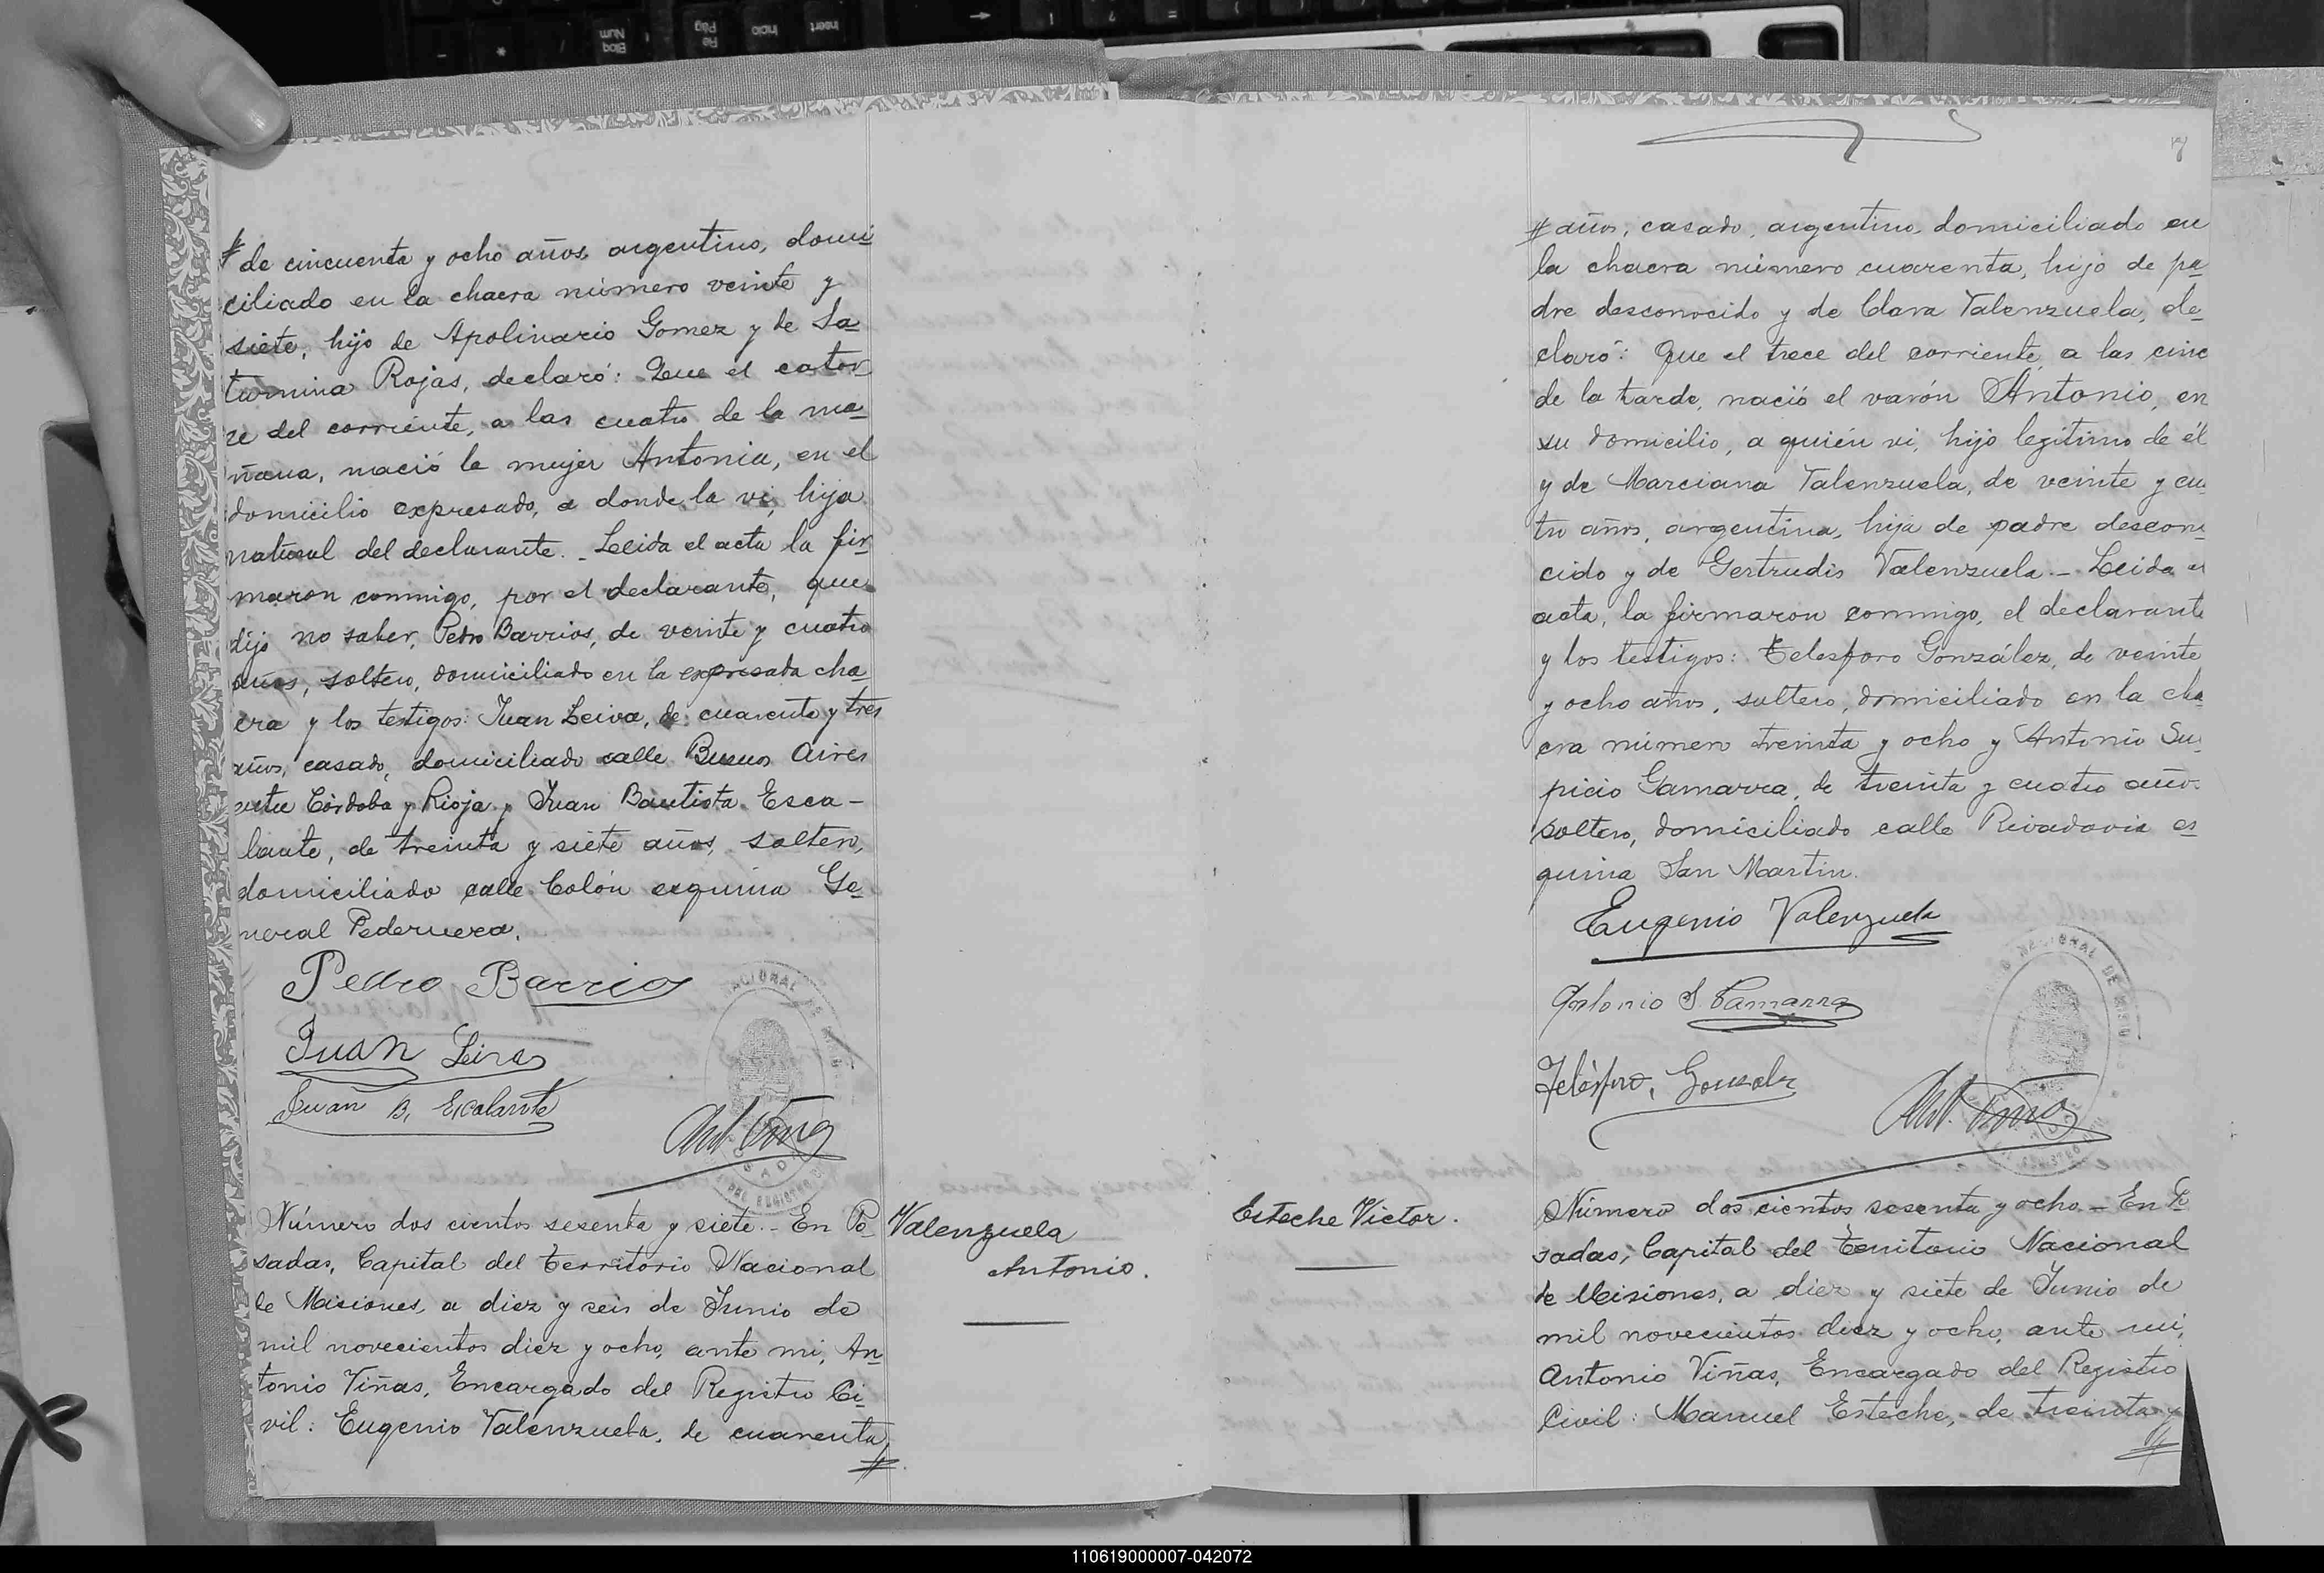 # de cincuenta y ocho años, argentino, domi
ciliado en la chacra número veinte y
siete, hijo de Apolinario Gomez y de Sa
turnina Rojas, declaró: Que el cator
ce del corriente, a las cuatro de la ma
ñana, nació la mujer Antonia, en el
domicilio expresado, a donde la vi, hija
natural del declarante. Leida el acta la fir
maron conmigo, por el declarante, que
dijo no saber, Pedro Barrios, de veinte y cuatro
años, soltero, domiciliado en la expresada cha
cra y los testigos: Juan Leiva, de cuarenta y tres
años, casado, domiciliado calle Buenos Aires
entre Córdoba y Rioja y Juan Bautista Esca-
lante, de treinta y siete años, soltero,
domiciliado calle Colón esquina Ge
neral Pedernera.
Pedro Barrios
Juan Leiva
Juan B. Escalante
Ant. Viñas
Número dos cientos sesenta y siete.- En Po
sadas, Capital del Territorio Nacional
de Misiones, a diez y seis de Junio de
mil novecientos diez y ocho, ante mi, An
tonio Viñas, Encargado del Registro Ci
vil: Eugenio Valenzuela, de cuarenta
#
Valenzuela
Antonio.
# años, casado, argentino, domiciliado en
la chacra número cuarenta, hijo de pa
dre desconocido y de Clara Valenzuela, de
claró: Que el trece del corriente, a las cinc
de la tarde, nació el varón Antonio, en
su domicilio, a quién vi, hijo legitimo de él
y de Marciana Valenzuela, de veinte y cu
tro años, argentina, hija de padre descono
cido y de Gertrudis Valenzuela.- Leida el
acta, la firmaron conmigo, el declarante
y los testigos: Telesforo González, de veinte
y ocho años, soltero, domiciliado en la cha
cra número treinta y ocho y Antonio Su
picio Gamarra, de treinta y cuatro años
soltero, domiciliado calle Rivadavia es
quina San Martin.
Eugenio Valenzuela
Antonio S. Gamarra
Telésforo, Gonzalz
Ant. Viñas
Esteche Victor.
Número dos cientos sesenta y ocho.- En Po
sadas, Capital del Territorio Nacional
de Misiones, a diez y siete de Junio de
mil novecientos diez y ocho, ante mi,
Antonio Viñas, Encargado del Registro
Civil: Manuel Esteche, de treinta y
#
110619000007-042072